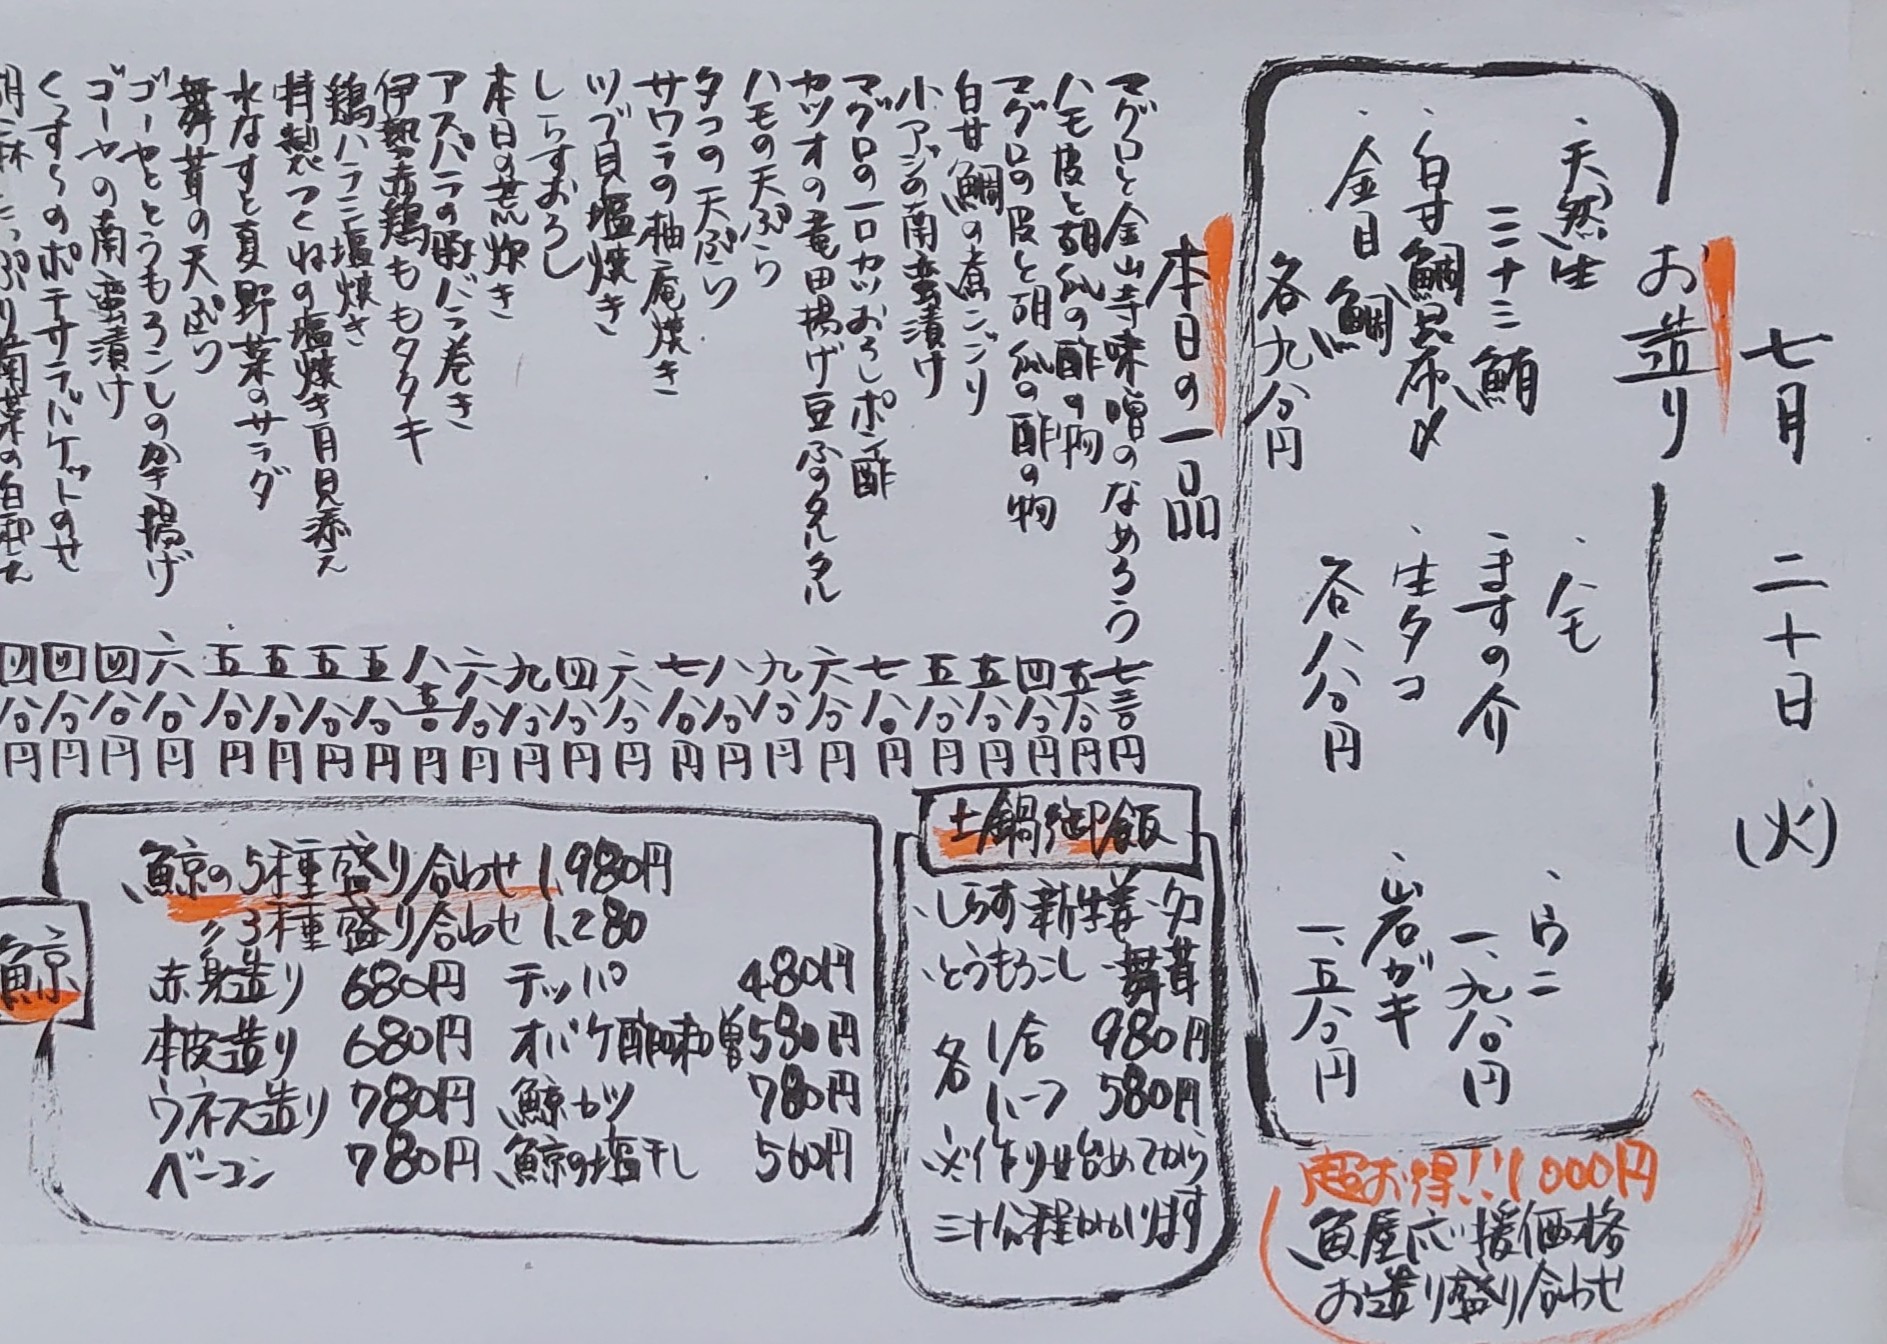 七月 二十日 (火)
お造り
・天然生
ミナミ鮪
・白甘鯛昆布〆
・金目鯛
各九八〇円
・ハモ
・ますの介
・生タコ
各八八〇円
・ウニ
一、九八〇円
・岩ガキ
一、五八〇円
超お得!!1000円
魚屋応援価格
お造り盛り合わせ
本日の一品
マグロと金山寺味噌のなめろう 七三〇円
ハモ皮と胡瓜の酢の物 五八〇円
マグロの皮と胡瓜の酢の物 四八〇円
白甘鯛の煮こごり 五八〇円
小アジの南蛮漬け 五八〇円
マグロの一口カツおろしポン酢 七八〇円
カツオの竜田揚げ豆ふのタルタル 六八〇円
ハモの天ぷら 九八〇円
タコの天ぷら 八八〇円
サワラの柚庵焼き 七八〇円
ツブ貝塩焼き 六八〇円
しらすおろし 四八〇円
本日の荒炊き 九八〇円
アスパラの豚バラ巻き 六八〇円
伊勢赤鶏ももタタキ 八五〇円
鶏ハラミ塩焼き 五八〇円
特製つくねの塩焼き月見添え 五八〇円
水なすと夏野菜のサラダ 五八〇円
舞茸の天ぷら 五八〇円
ゴーヤととうもろこしのかき揚げ 六八〇円
ゴーヤの南蛮漬け 四八〇円
くっすらのポテサラバケットのせ 四八〇円
四八〇円
土鍋御飯
・しらす・新生姜・タコ
・とうもろこし・舞茸
各 1合 980円
ハーフ 580円
※作り始めてから
三十分程かかります
鯨
鯨の5種盛り合わせ 1,980円
〃3種盛り合わせ 1,280
赤身造り 680円 テッパ 480円
本皮造り 680円 オバケ酢味噌 580円
ウネス造り 780円 鯨カツ 780円
ベーコン 780円 鯨の塩干し 560円